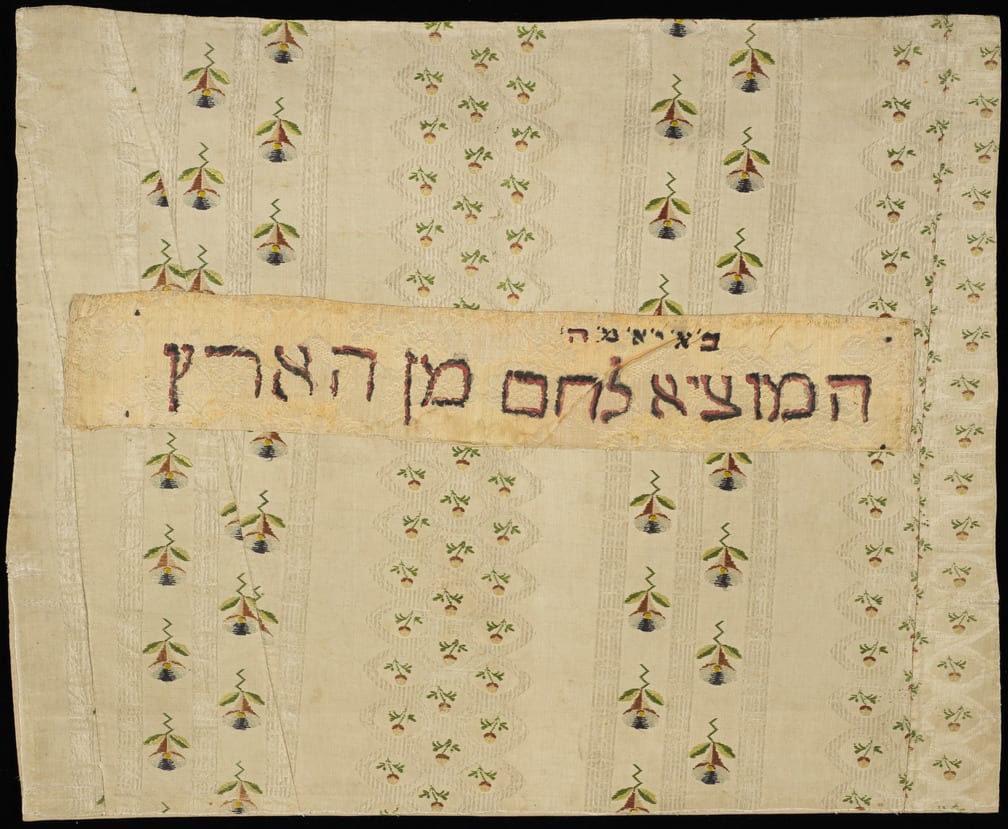 ב׳א׳י׳א׳מ׳ ה׳
המוציא לחם מן הארץ